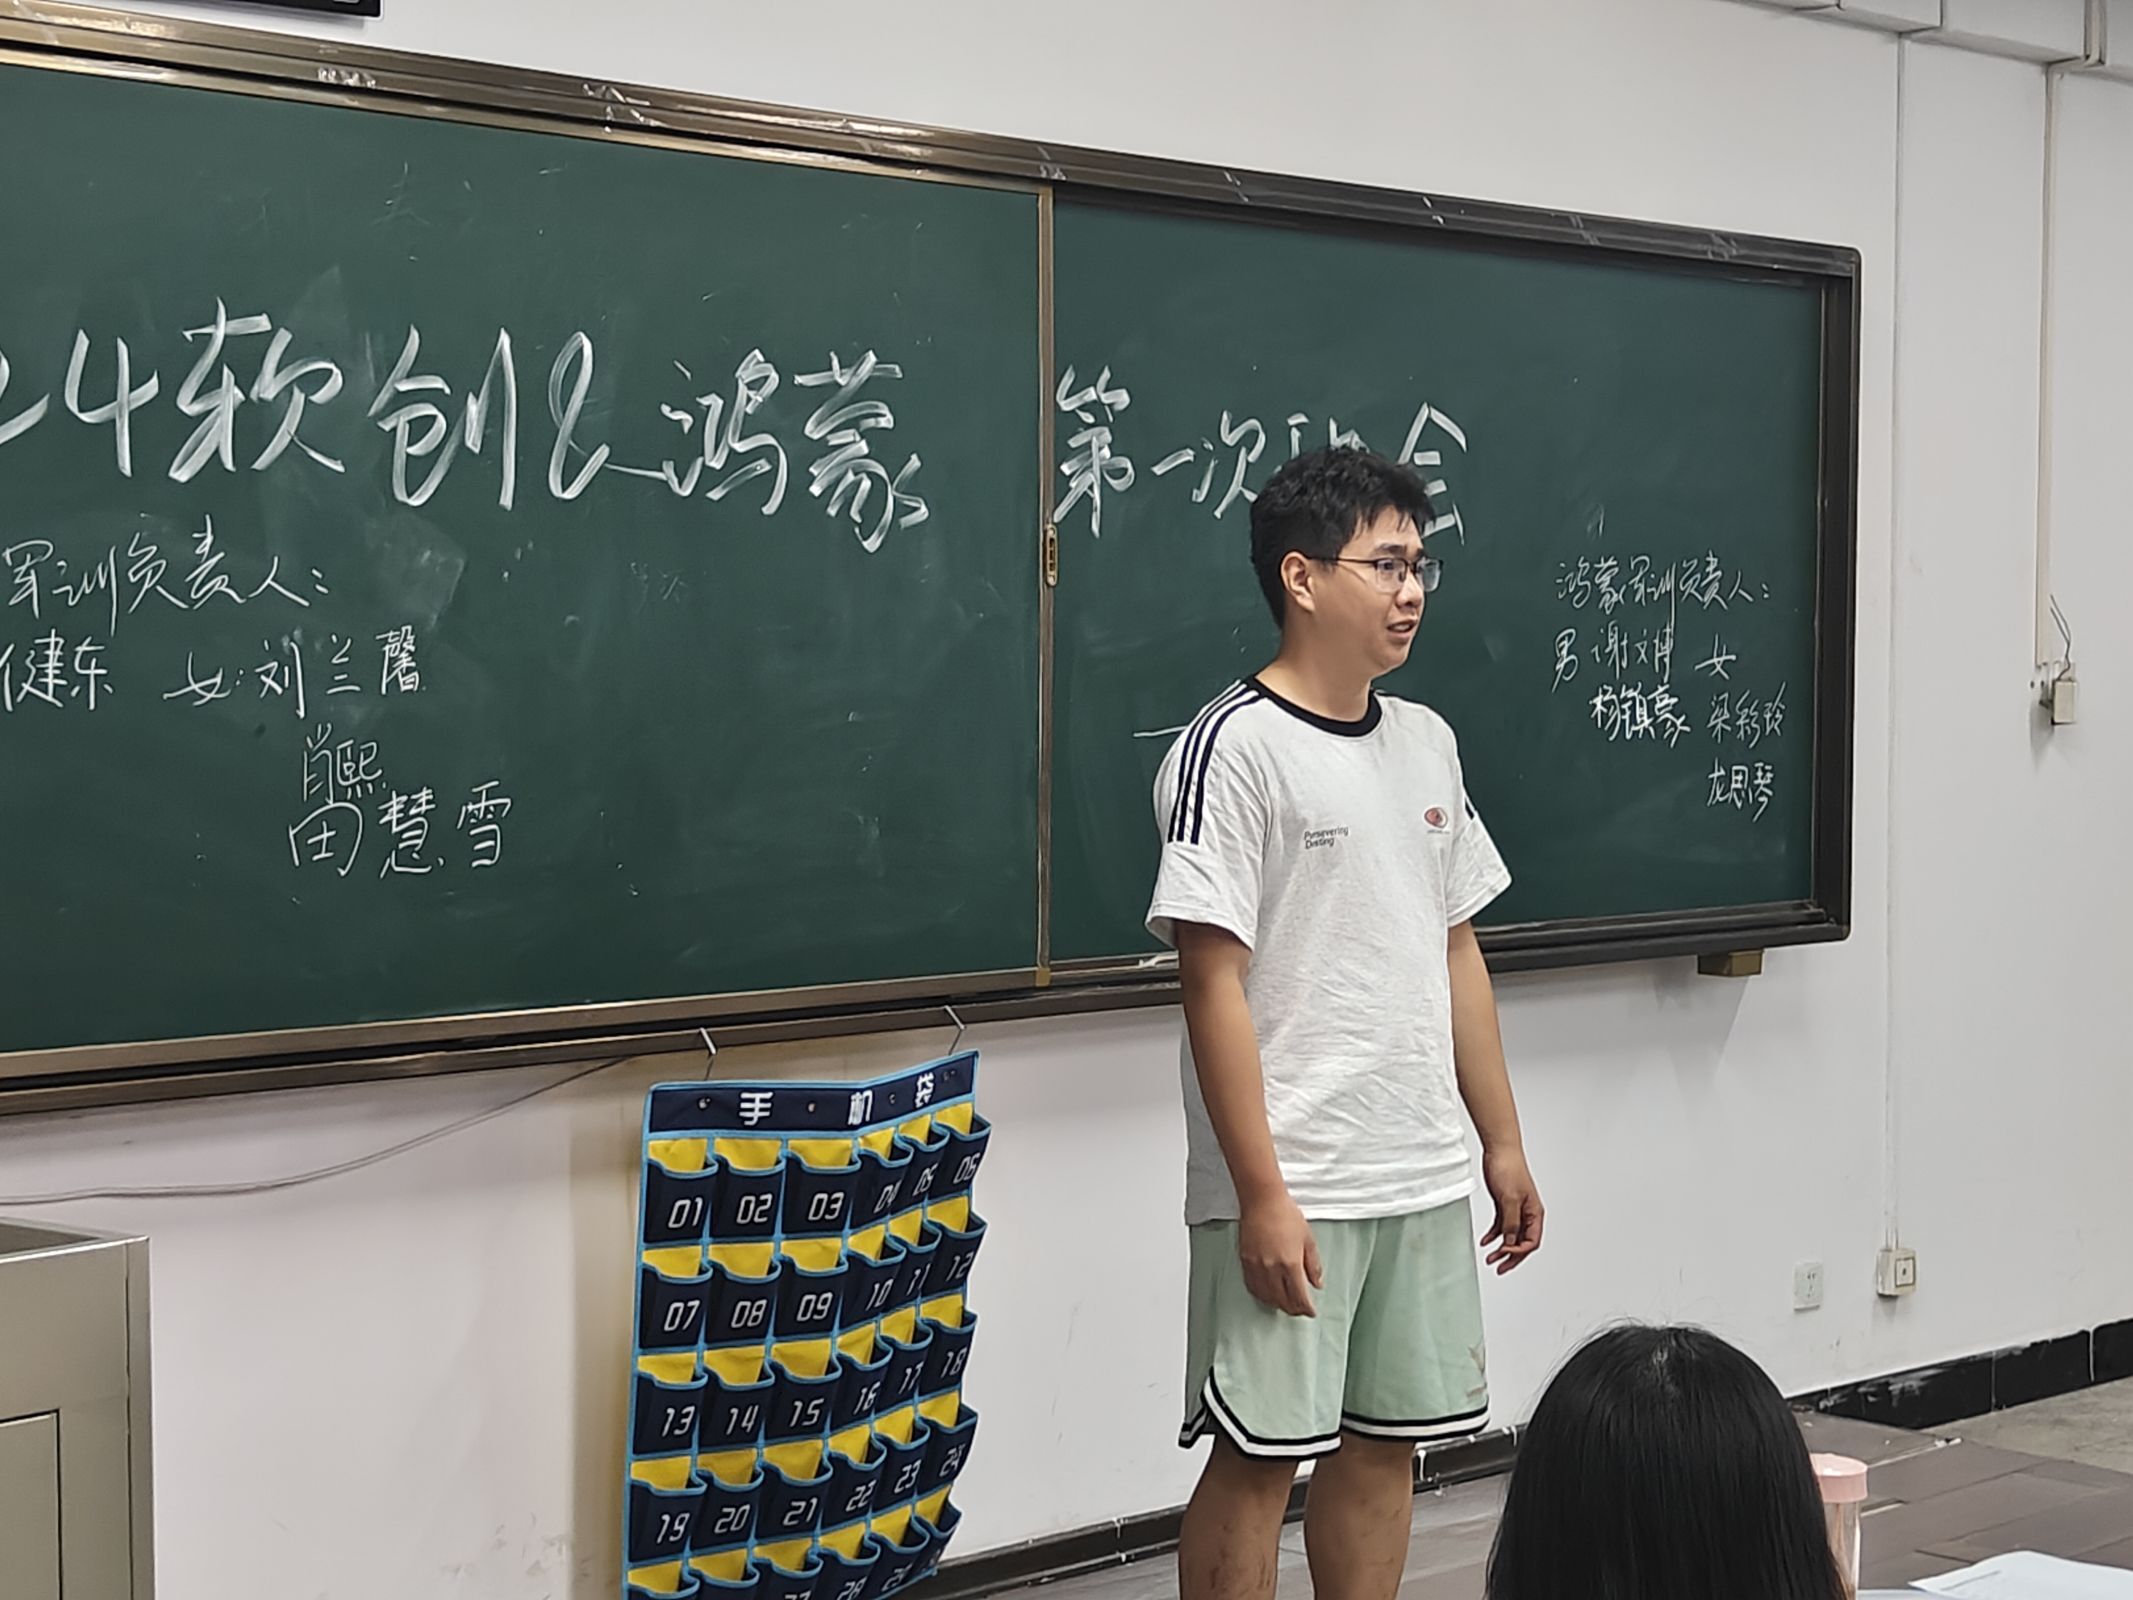 24软创&鸿蒙 第一次班会
军训负责人：
健东 女：刘兰馨
肖熙
田慧雪
鸿蒙军训负责人：
男 谢文博 女
杨镇豪 梁彩玲
龙思琴
Persevering
Destiny
手机袋
01 02 03 04 05 06
07 08 09 10 11 12
13 14 15 16 17 18
19 20 21 22 23 24
27 28 29